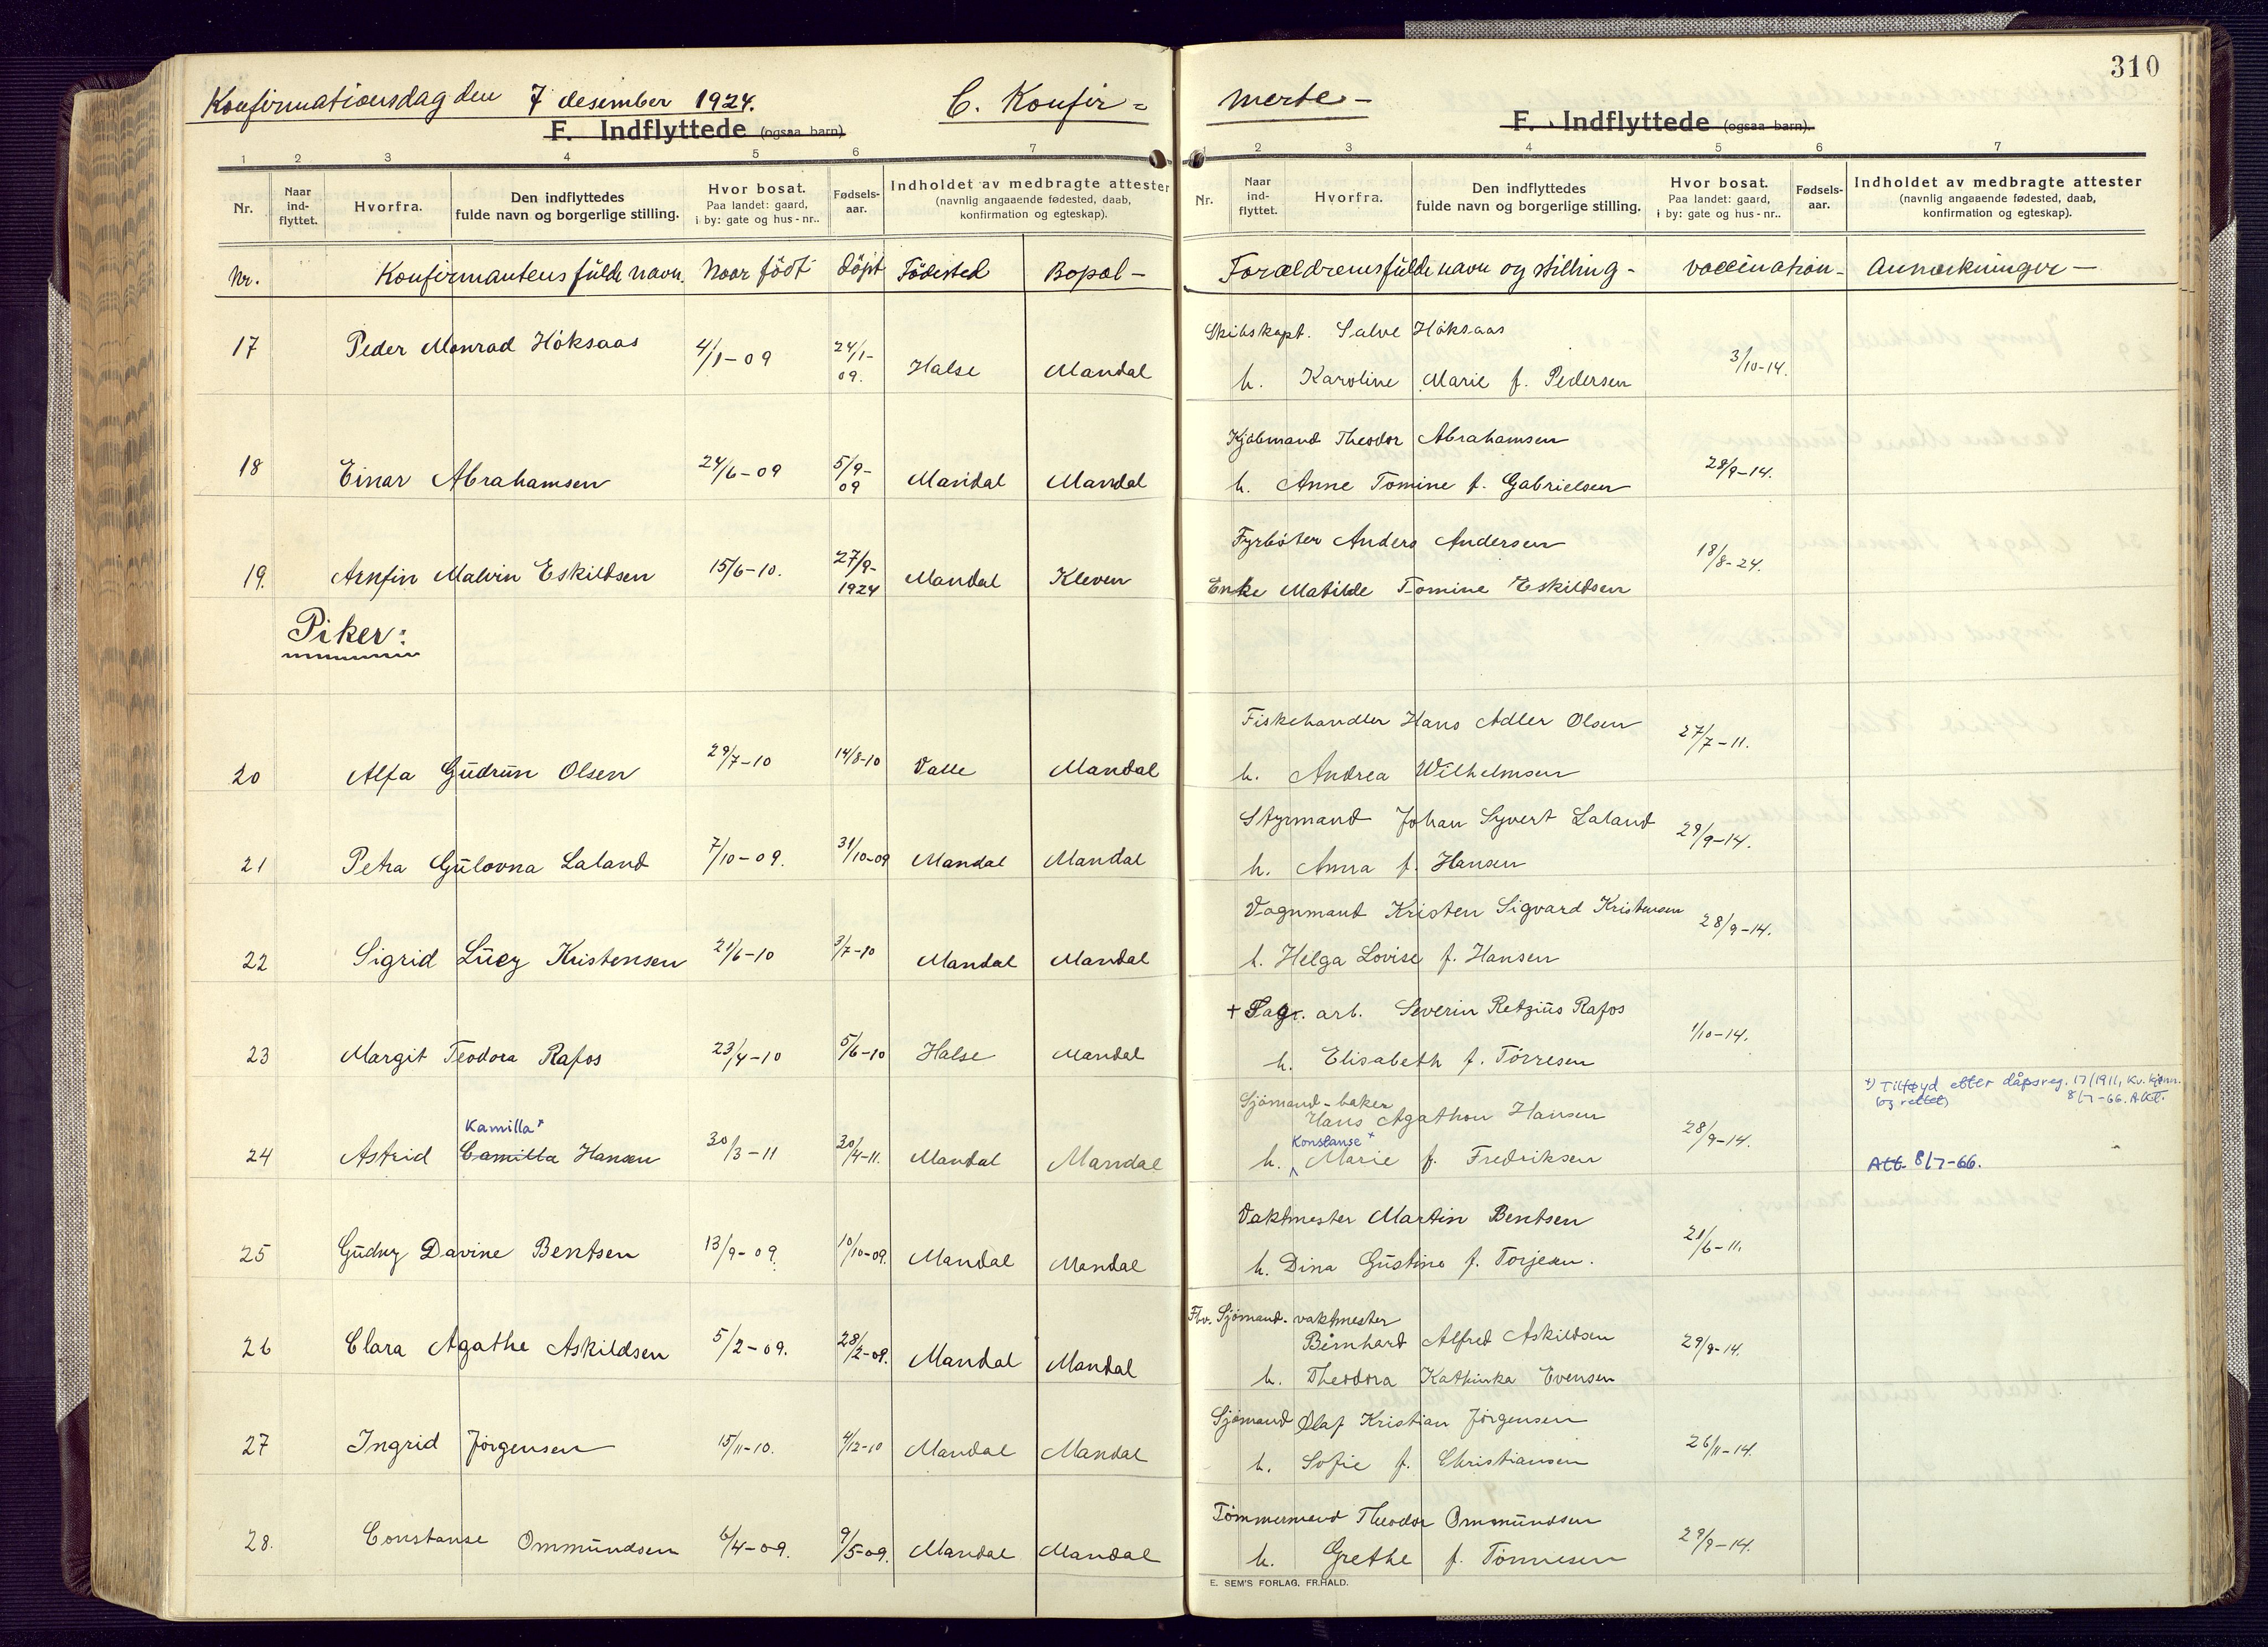 310
Konfirmationsdag den 7 desember 1924. C. Konfir=
merte-
F. Indflyttede (ogsaa barn).
F. Indflyttede (ogsaa barn).
1 2 3 4 5 6 7
1 2 3 4 5 6 7
Nr. Naar ind-flyttet. Hvorfra. Den indflyttedes fulde navn og borgerlige stilling. Hvor bosat. Paa landet: gaard, i by: gate og hus-nr.. Fødsels-aar. Indholdet av medbragte attester (navnlig angaaende fødested, daab, konfirmation og egteskap).
Nr. Naar ind-flyttet. Hvorfra. Den indflyttedes fulde navn og borgerlige stilling. Hvor bosat. Paa landet: gaard, i by: gate og hus-nr.. Fødsels-aar. Indholdet av medbragte attester (navnlig angaaende fødested, daab, konfirmation og egteskap).
Nr. Konfirmantens fulde navn. Naar födt döpt Födested Bopæl-
Forældrenes fulde navn og stilling- vaccination- Anmerkninger-
17 Peder Monrad Höksaas 4/1-09 24/1-09. Halse Mandal
Skibskapt. Salve Höksaas
h. Karoline Marie f. Pedersen 3/10-14.
18 Einar Abrahamsen 24/6-09 5/9-09 Mandal Mandal
Kjöbmand Theodor Abrahamsen
h. Anne Tomine f. Gabrielsen 28/9-14.
19. Arnfin Malvin Eskildsen 15/6-10. 27/9-1924 Mandal Kleven
Fyrböter Anders Andersen
Enke Matilde Tomine Eskildsen 18/8-24.
Piker:
20 Alfa Gudrun Olsen 29/7-10 14/8-10 Valle Mandal
Fiskehandler Hans Adler Olsen
h. Andrea Wilhelmsen 27/7-11.
21 Petra Gulovna Laland 7/10-09. 31/10-09 Mandal Mandal
Styrmand Johan Syvert Laland
h. Anna f. Hansen 29/9-14.
22 Sigrid Lucy Kristensen 21/6-10 3/7-10 Mandal Mandal
Vognmand Kristen Sigvard Kristensen
h. Helga Lovise f. Hansen 28/9-14.
23 Margit Teodora Rafos 23/4-10 5/6-10 Halse Mandal
+ Fagr. arb. Severin Retzius Rafos
h. Elisabeth f. Törresen 1/10-14.
24 Astrid Camilla Hansen 30/3-11 30/4-11. Mandal Mandal
Kamilla+
Sjömand-baker
Hans Agathon Hansen
Konstanse+
h. Marie f. Fredriksen 28/9-14.
+) Tilføyd etter dåpsreg. 17/1911, Kv. kjønn.
(og rettet) 8/7-66. AKT.
Att. 8/7-66.
25 Gudny Davine Bentsen 13/9-09. 10/10-09. Mandal Mandal
Vaktmester Martin Bentsen
h. Dina Gustine f. Torjesen. 21/6-11.
26 Clara Agathe Askildsen 5/2-09. 28/2-09. Mandal Mandal
Fhv. Sjömand. vaktmester
Bernhard Alfred Askildsen
h. Theodora Kathinka Evensen 29/9-14.
27 Ingrid Jörgensen 15/11-10. 4/12-10 Mandal Mandal
Sjömand Olaf Kristian Jörgensen
h. Sofie f. Christiansen 26/11-14.
28. Constanse Ommundsen 6/4-09. 9/5-09. Mandal Mandal
Tömmermand Theodor Ommundsen
h. Grethe f. Tönnesen 29/9-14.
E. SEM'S FORLAG, FR.HALD.